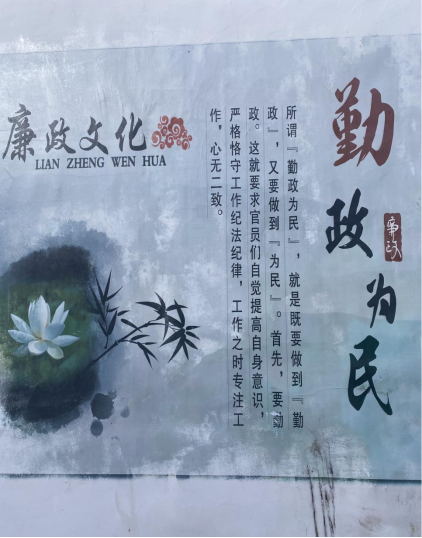 廉政文化
LIAN ZHENG WEN HUA
勤政为民
廉政
所谓『勤政为民』，就是既要做到『勤
政』，又要做到『为民』。首先，要勤
政。这就要求官员们自觉提高自身意识，
严格恪守工作纪法纪律，工作之时专注工
作，心无二致。